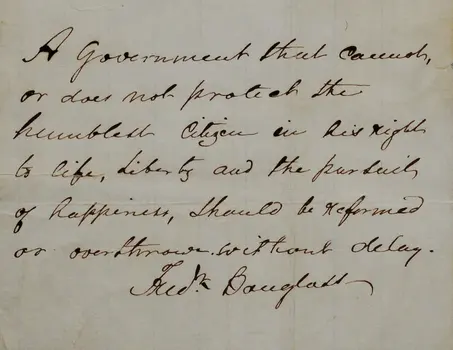 A Government that cannot,
or does not protect the
humblest citizen in his right
to life, liberty and the pursuit
of happiness, should be reformed
or overthrown without delay.
Fredk Douglass